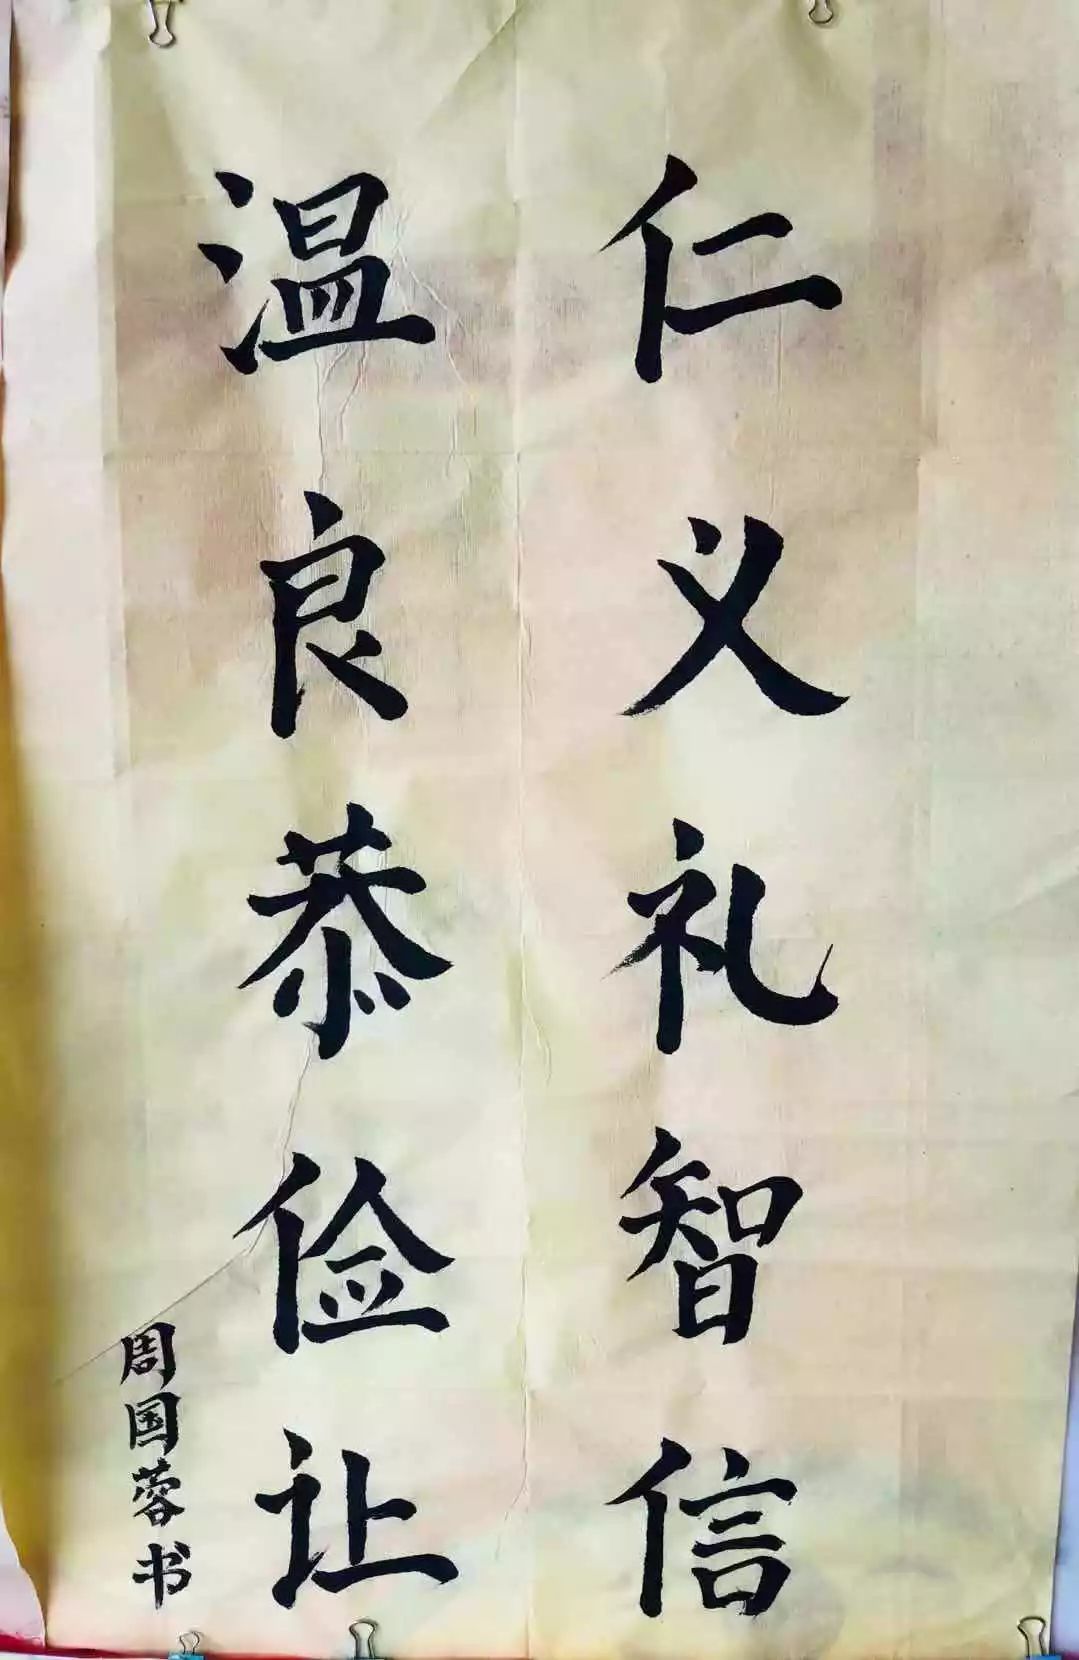 仁义礼智信
温良恭俭让
周国蓉书